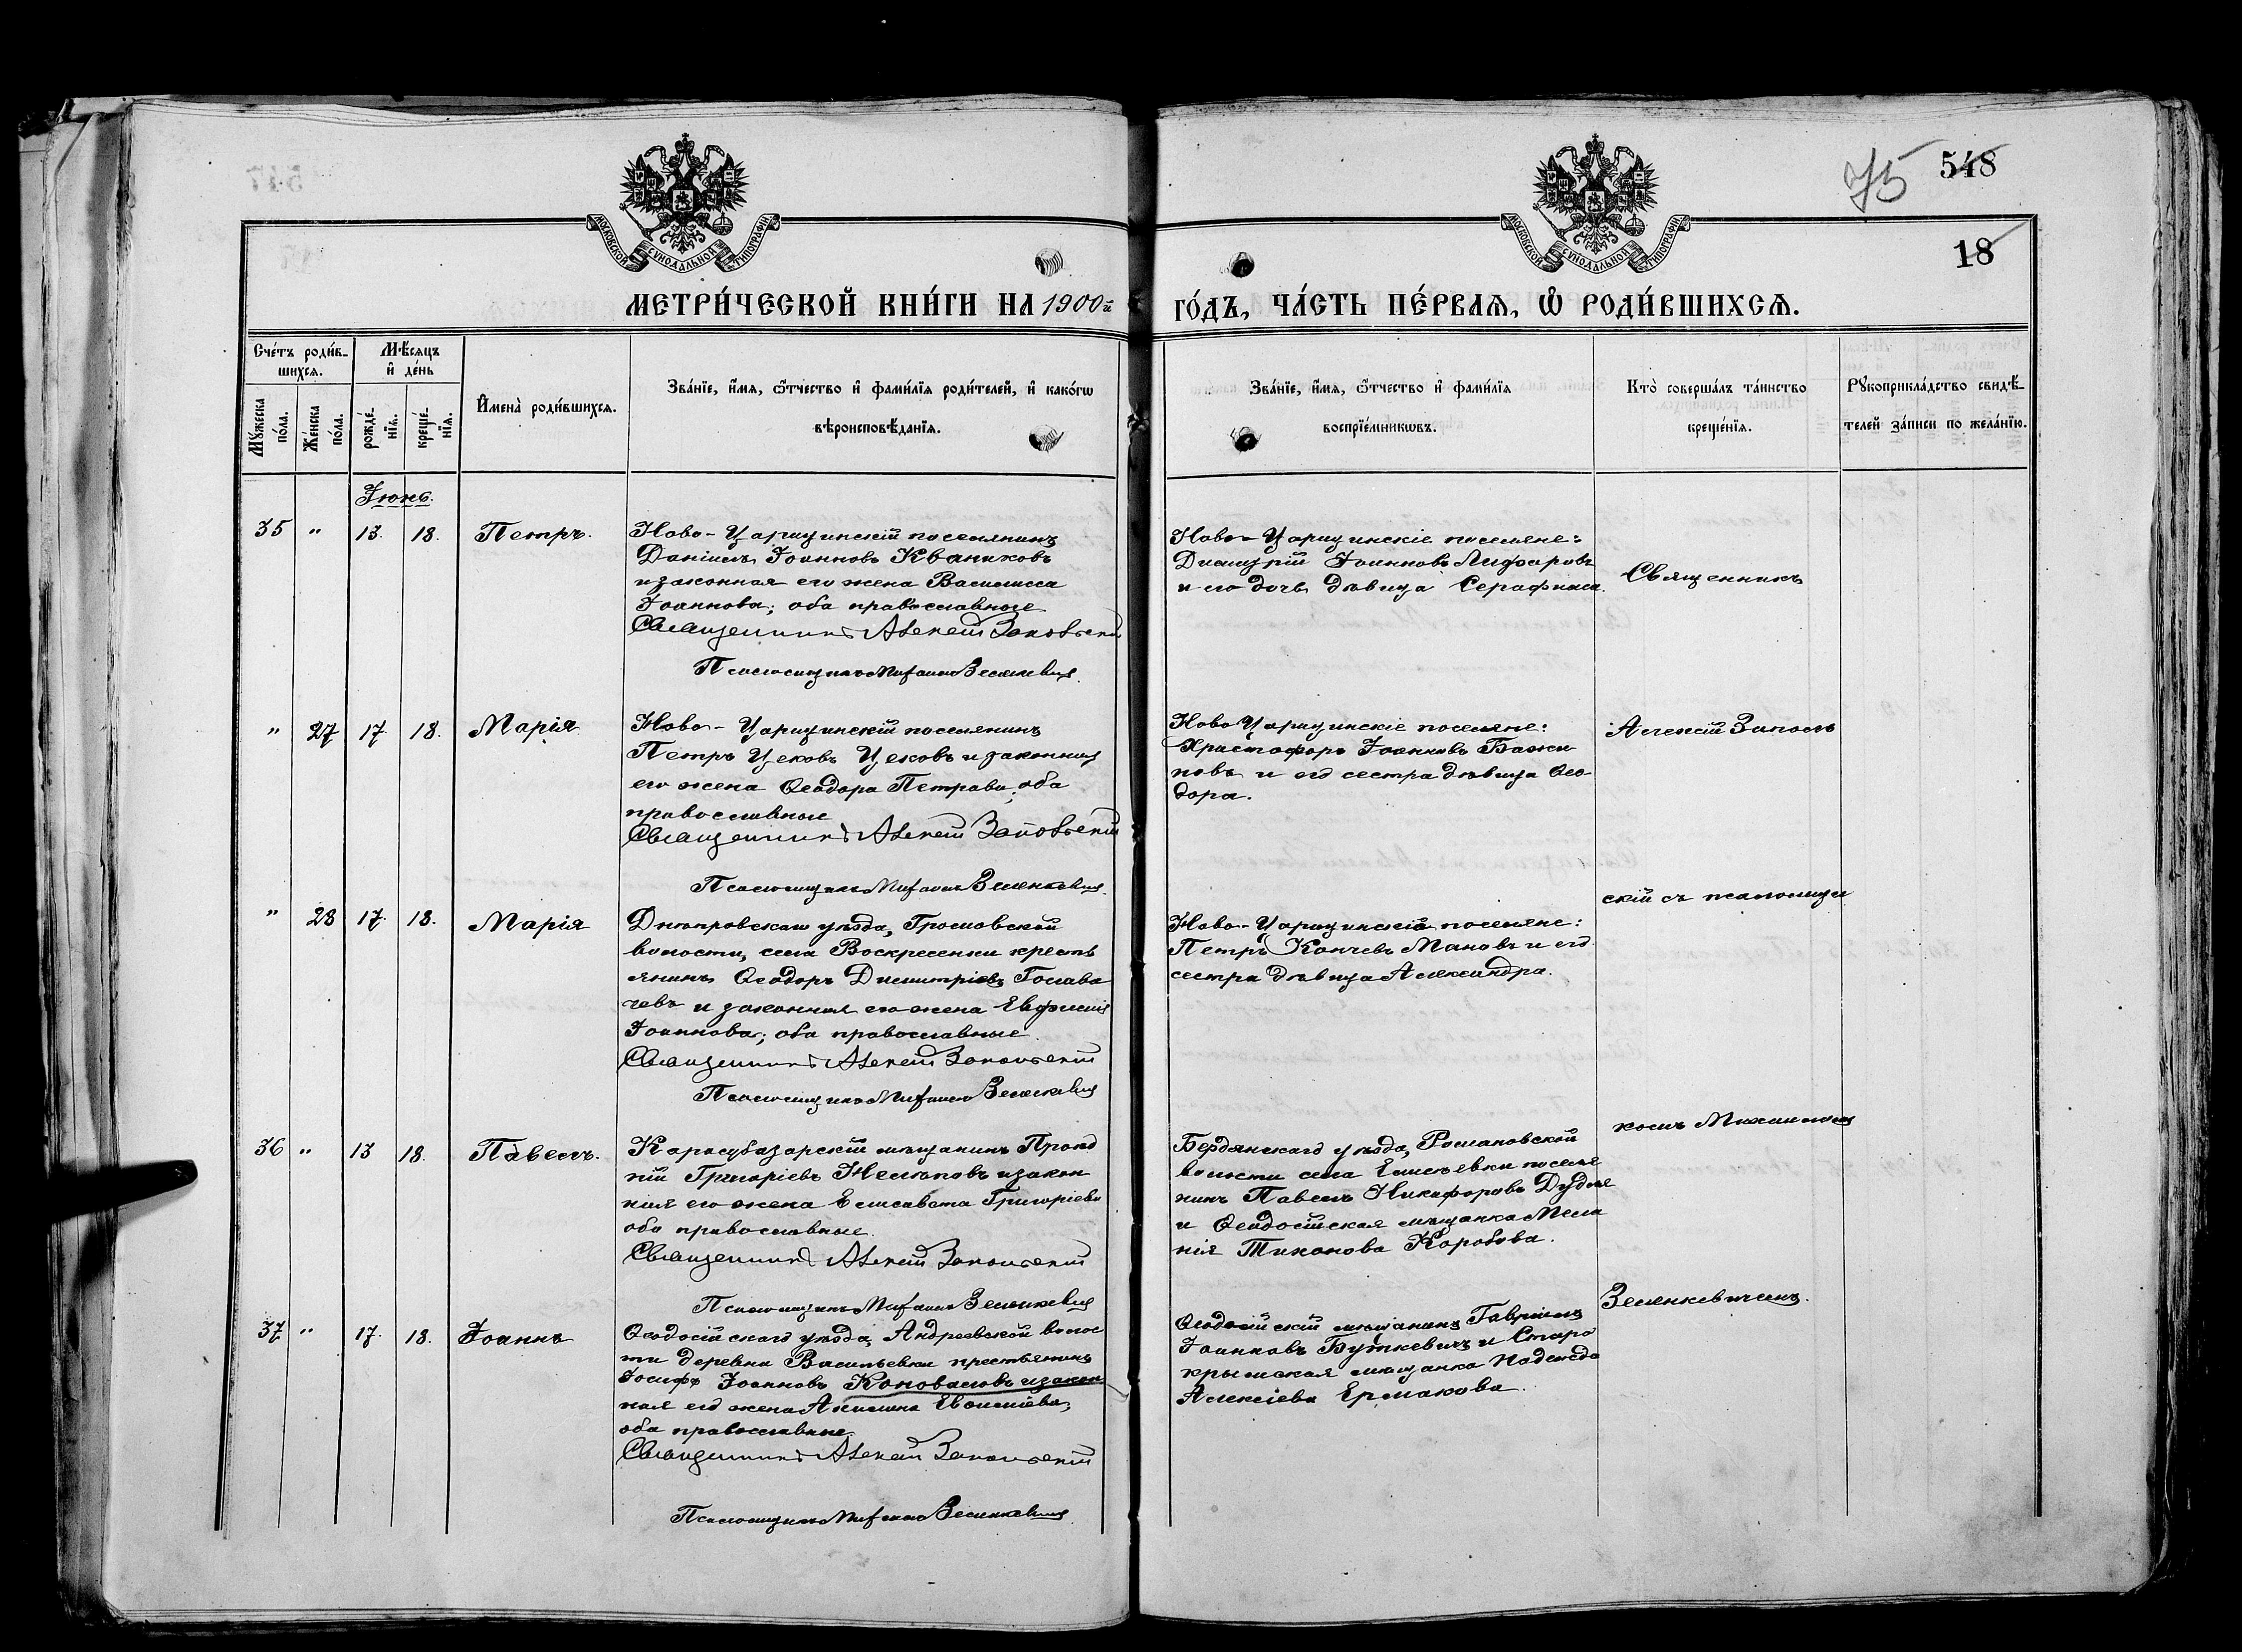 547
75
548
18
МОСКОВСКОЙ СѴНОДАЛЬНОЙ ТИПОГРАФІИ
МОСКОВСКОЙ СѴНОДАЛЬНОЙ ТИПОГРАФІИ
МЕТРИ́ЧЕСКОЙ КНИ́ГИ НА 1900й
ГО́ДЪ, ЧА́СТЬ ПЕ́РВАѦ, Ѽ РОДИ́ВШИХСѦ.
Сче́тъ роди́в-
шихсѧ.
Мꙋ́жеска по́ла.
Же́нска по́ла.
Мѣ́сѧцъ
и҆ де́нь
рожде́-
нїѧ.
креще́-
нїѧ.
И҆мена̀ роди́вшихсѧ.
Зва́нїе, и҆́мѧ, ѻ҆́тчество и҆ фами́лїѧ роди́телей, и҆ како́гѡ
вѣроисповѣ́данїѧ.
Зва́нїе, и҆́мѧ, ѻ҆́тчество и҆ фами́лїѧ
воспрїе́мникѡвъ.
Кто̀ соверша́лъ та́инство
креще́нїѧ.
Рꙋкоприкла́дство свидѣ́-
телей за́писи по жела́нїю.
Іюнь.
35 " 13. 18. Петръ.
Ново-Царицинскій поселянинъ
Даніилъ Іоанновъ Кваниковъ
и законная его жена Василисса
Іоаннова; оба православные
Священникъ Алексій Запольскій
Псаломщикъ Михаилъ Зеленкевич
Ново-Царицинскіе поселяне:
Димитрій Іоанновъ Лифаровъ
и его дочь девица Серафима.
Священникъ
" 27 17. 18. Марія
Ново-Царицинскій поселянинъ
Петръ Цековъ Цековъ и законная
его жена Ѳеодора Петрова; оба
православные
Священникъ Алексій Запольскій
Псаломщикъ Михаилъ Зеленкевич.
Ново Царицинскіе поселяне:
Христофоръ Іоанновъ Бажи
новъ и его сестра дѣвица Ѳео-
дора.
Алексій Заполь
скій съ псаломщи
" 28 17. 18. Марія
Днепровскаго уѣзда, Громовской
волости, села Воскресенки кресть
янинъ Ѳеодоръ Димитріевъ Голава
чевъ и законная его жена Евфимія
Іоаннова; оба православные.
Священникъ Алексій Запольскій
Псаломщикъ Михаилъ Зеленкевич
Ново-Царицинскіе поселяне:
Петръ Кончевъ Мановъ и его
сестра дѣвица Александра.
комъ Михаиломъ
36 " 13 18. Павелъ.
Карасубазарскій мѣщанинъ Проко
пій Григоріевъ Нелюповъ и закон
ная его жена Елисавета Григоріева
оба православные.
Священникъ Алексій Запольскій
Псаломщикъ Михаилъ Зеленкевич
Бердянскаго уѣзда, Романовской
волости села Елисѣевки поселя
нинъ Павелъ Никифоровъ
и Ѳеодосійская мѣщанка Мела
нія Тихонова Коробова.
Зеленкевичемъ.
37 " 17. 18. Іоаннъ
Ѳеодосійскаго уѣзда, Андреевской волос
ти деревни Васильевки крестьянинъ
Іосифъ Іоанновъ Коноваловъ и закон
ная его жена Акилина Евфиміева;
оба православные.
Священникъ Алексій Запольскій
Псаломщикъ Михаилъ Зеленкевич
Ѳеодосійскій мѣщанинъ Гавріилъ
Іоанновъ Буткевичъ и Старо
крымская мѣщанка Надежда
Алексіева Ермакова.